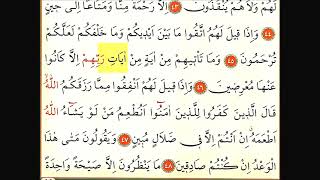 لَهُمْ وَلَا هُمْ يُنْقَذُونَ ﴿٤٣﴾ اِلَّا رَحْمَةً مِنَّا وَمَتَاعًا اِلٰى حٖينٍ
﴿٤٤﴾ وَاِذَا قٖيلَ لَهُمُ اتَّقُوا مَا بَيْنَ اَيْدٖيكُمْ وَمَا خَلْفَكُمْ لَعَلَّكُمْ
تُرْحَمُونَ ﴿٤٥﴾ وَمَا تَاْتٖيهِمْ مِنْ اٰيَةٍ مِنْ اٰيَاتِ رَبِّهِمْ اِلَّا كَانُوا
عَنْهَا مُعْرِضٖينَ ﴿٤٦﴾ وَاِذَا قٖيلَ لَهُمْ اَنْفِقُوا مِمَّا رَزَقَكُمُ اللّٰهُ
قَالَ الَّذٖينَ كَفَرُوا لِلَّذٖينَ اٰمَنُوا اَنُطْعِمُ مَنْ لَوْ يَشَاءُ اللّٰهُ
اَطْعَمَهُ اِنْ اَنْتُمْ اِلَّا فٖى ضَلَالٍ مُبٖينٍ ﴿٤٧﴾ وَيَقُولُونَ مَتٰى هٰذَا
الْوَعْدُ اِنْ كُنْتُمْ صَادِقٖينَ ﴿٤٨﴾ مَا يَنْظُرُونَ اِلَّا صَيْحَةً وَاحِدَةً